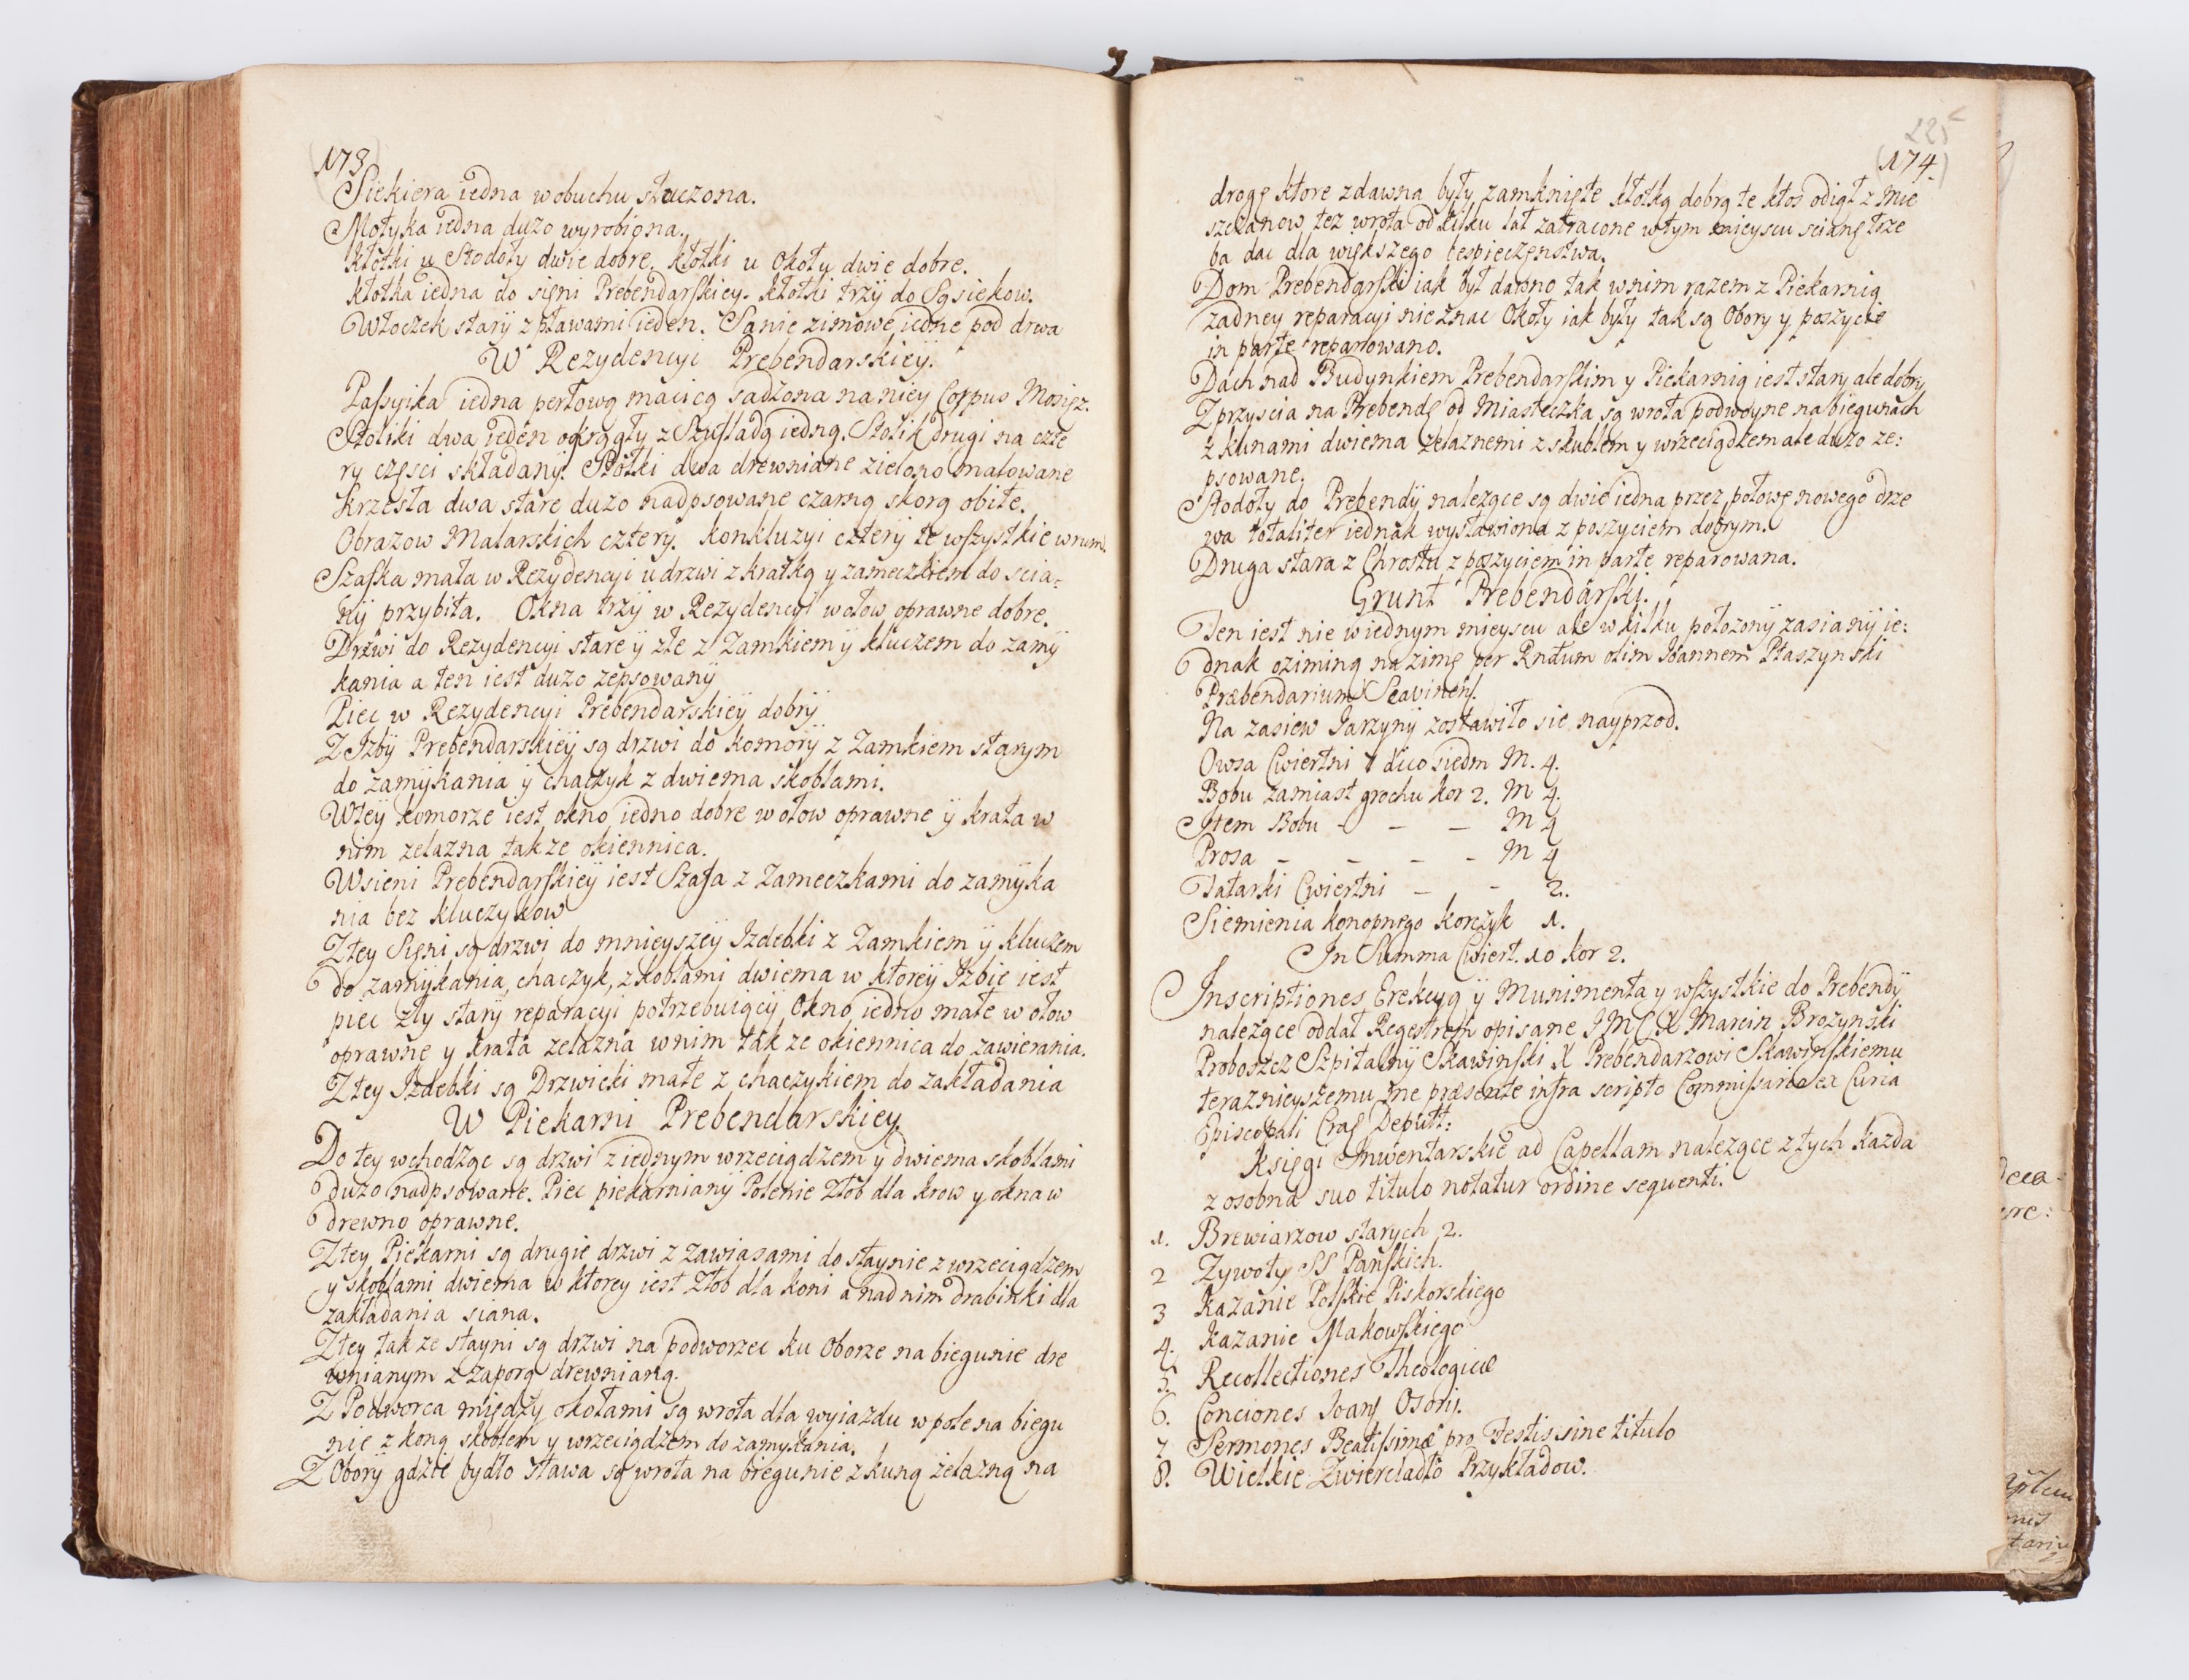 173
Siekiera iedna w obuchu stłuczona.
Motyka iedna duzo wyrobiona.
Kłotki u Stodoły dwie dobre. Kłotki u Okoły dwie dobre.
Kłotka iedna do sięni Prebendarskiey. Kłotki trzÿ do Sąsiekow.
Włoczek starÿ z pławami ieden. Sanie zimowe iedne pod drwa
W Rezydencyi Prebendarskieÿ.
Passyika iedna perłową macicą sadzona na niey Corpus Mosiąz.
Stoliki dwa ieden okrągły z Szufladą iedną. Stolik drugi na czte
ry częsci składanÿ. Stołki dwa drewniane zielono malowane
Krzesła dwa stare duzo nadpsowane czarną skorą obite.
Obrazow Malarskich cztery. Konkluzyi czterÿ te wszystkie w ram.
Szafka mała w Rezydencyi u drzwi z kratką y zameczkiem do scia-
nÿ przybita. Okna trzÿ w Rezydencyi w ołow oprawne dobre.
Drzwi do Rezydencyi stare ÿ złe z Zamkiem ÿ kluczem do zamÿ
kania a ten iest duzo zepsowanÿ
Piec w Rezydencyi Prebendarskieÿ dobrÿ
Z Izbÿ Prebendarskieÿ są drzwi do komorÿ z Zamkiem starym
do zamÿkania ÿ chaczyk z dwiema skoblami.
W teÿ komorze iest okno iedno dobre w ołow oprawne ÿ krata w
nim zelazna takze okiennica.
W sieni Prebendarskieÿ iest Szafa z Zameczkami do zamÿka
nia bez kluczykow
Z tey Sięni są drzwi do mnieyszeÿ Izdebki z Zamkiem ÿ kluczem
do zamÿkania, chaczyk, z koblami dwiema w ktoreÿ Izbie iest
piec zły starÿ reparacyi potrzebuiącÿ Okno iedno małe w ołow
oprawne y krata zelazna w nim tak ze okiennica do zawierania.
Z tey Izdebki są Drzwicki małe z chaczykiem do zakładania
W Piekarni Prebendarskiey
Do tey wchodząc są drzwi z iednym wrzeciądzem y dwiema skoblami
duzo nadpsowane. Piec piekarnianÿ Polenie Złob dla krow y okna w
drewno oprawne.
Z tey Piekarni są drugie drzwi z zawiasami do staynie z wrzeciądzem
y skoblami dwiema w ktorey iest Złob dla koni a nad nim drabinki dla
zakładania siana.
Z tey tak ze stayni są drzwi na podworzec ku Oborze na biegunie dre
wnianym z zaporą drewnianą.
Z Podworca między okołami są wrota dla wyiazdu w pole na biegu
nie z koną skoblem y wrzeciądzem do zamykania.
Z Oborÿ gdzie bydło stawa są wrota na biegunie z kuną zelazną na
225
174.
drogę ktore zdawna były zamknięte kłotką dobrą te ktos odiął z Mie
szczanow, tez wrota od kilku lat zatracone w tym mieyscu scianę trze
ba dac dla większego bespieczęnstwa.
Dom Prebendarski iak był dawno tak w nim razem z Piekarnią
zadney reparacyi nie znac Okoły iak były tak są Obory y poszycie
in parte reparowano.
Dach nad Budynkiem Prebendarskim y Piekarnią iest stary ale dobry
Z przyscia na Prebendę od Miasteczka są wrota podwoyne na biegunach
z kunami dwiema zelaznemi z skoblem y wrzeciądzem ale duzo ze:
psowane.
Stodoły do Prebendÿ nalezące są dwie iedna przez połowę nowego drze
wa totaliter iednak wystawiona z poszyciem dobrym.
Druga stara z Chrostu z poszyciem in parte reparowana.
Grunt Prebendarski.
Ten iest nie w iednym mieyscu ale w kilku połozonÿ zasianÿ ie:
dnak oziminą na zimę per Rndum olim Joannem Ptaszynski
Præbendarium Scavinens.
Na zasiew Jarzynÿ zostawiło sie nayprzod.
Owsa Cwiertni 7 dico siedm M. 4.
Bobu zamiast grochu kor 2. M 4.
Item Bobu - - - M 4
Prosa - - - - M 4
Tatarki Cwiertni - - 2.
Siemienia konopnego korczyk 1.
In Summa Cwiert. 10 kor 2.
Inscriptiones Erekcyą ÿ Munimenta y wszystkie do Prebendÿ
nalezące oddał Regestrem opisane J M C X Marcin Brozynski
Proboszcz Szpitalnÿ Skawinski X Prebendarzowi Skawinskiemu
teraznieyszemu me præsente infra scripto Commissario ex Curia
Episcopali Crac Deputt:
Księgi Inwentarskie ad Capellam nalezące z tych kazda
z osobna suo titulo notatur ordine sequenti.
1. Brewiarzow starych 2.
2 Zywoty SS Panskich.
3 Kazanie Polskie Piskorskiego
4. Kazanie Makowskiego
5. Recollectiones Theologicæ
6. Conciones Joans Osorij.
7 Sermones Beatissimæ pro Festis sine titulo
8. Wielkie Zwierciadło Przykładow.